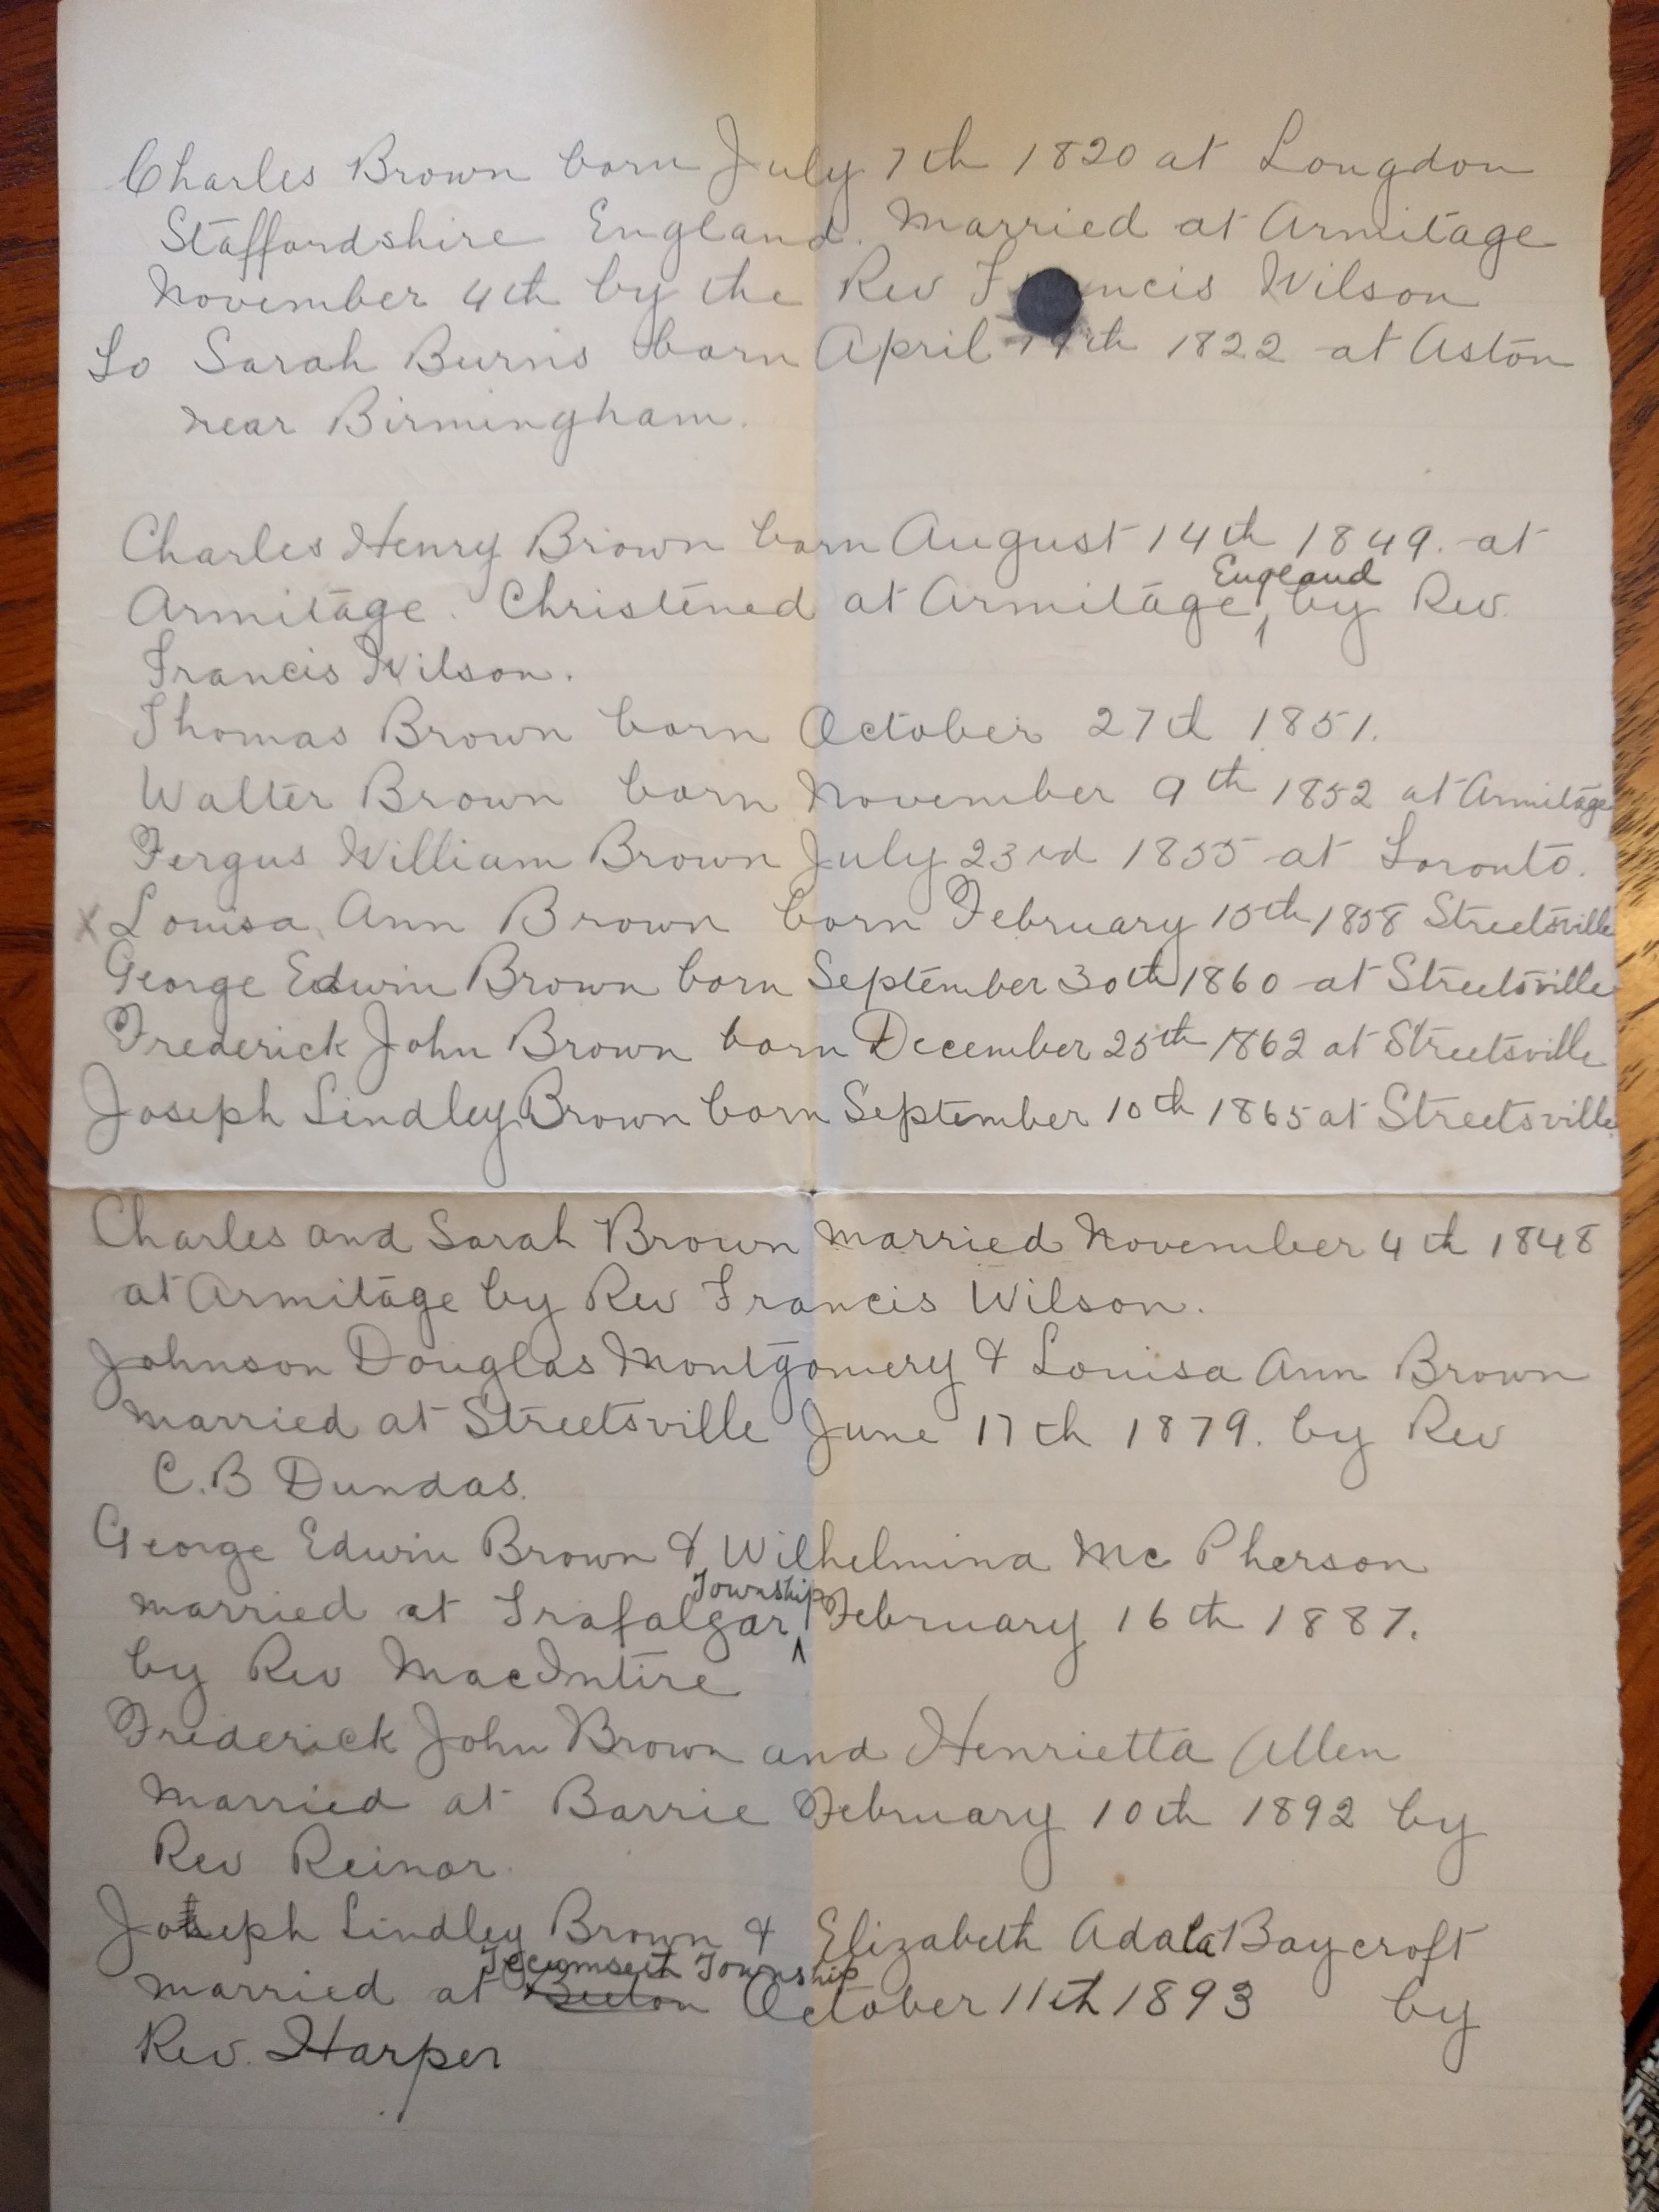 Charles Brown born July 7th 1820 at Longdon
Staffordshire England. Married at Armitage
November 4th by the Rev Francis Wilson
to Sarah Burns born April 19th 1822 at Aston
near Birmingham.
Charles Henry Brown born August 14th 1849. at
England
Armitage. Christened at Armitage, by Rev.
Francis Wilson.
Thomas Brown born October 27th 1851.
Walter Brown born November 9th 1852 at Armitage
Fergus William Brown July 23rd 1855 at Toronto.
x Louisa Ann Brown born February 15th 1858 Streetsville
George Edwin Brown born September 30th 1860 at Streetsville
Frederick John Brown born December 25th 1862 at Streetsville
Joseph Lindley Brown born September 10th 1865 at Streetsville
Charles and Sarah Brown married November 4th 1848
at Armitage by Rev Francis Wilson.
Johnson Douglas Montgomery & Louisa Ann Brown
married at Streetsville June 17th 1879. by Rev
C.B Dundas.
George Edwin Brown & Wilhelmina Mc Pherson
Township
married at Trafalgar, February 16th 1887.
by Rev MacIntire
Frederick John Brown and Henrietta Allen
married at Barrie February 10th 1892 by
Rev Reinor.
Joseph Lindley Brown & Elizabeth Adala Baycroft
Tecumseth Township
married at Beeton October 11th 1893 by
Rev. Harper